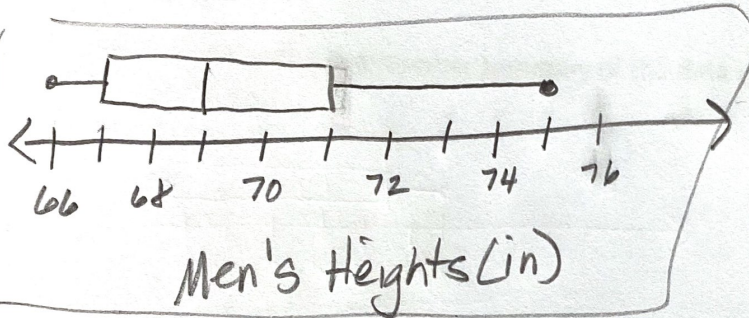 66 68 70 72 74 76
Men's Heights (in)